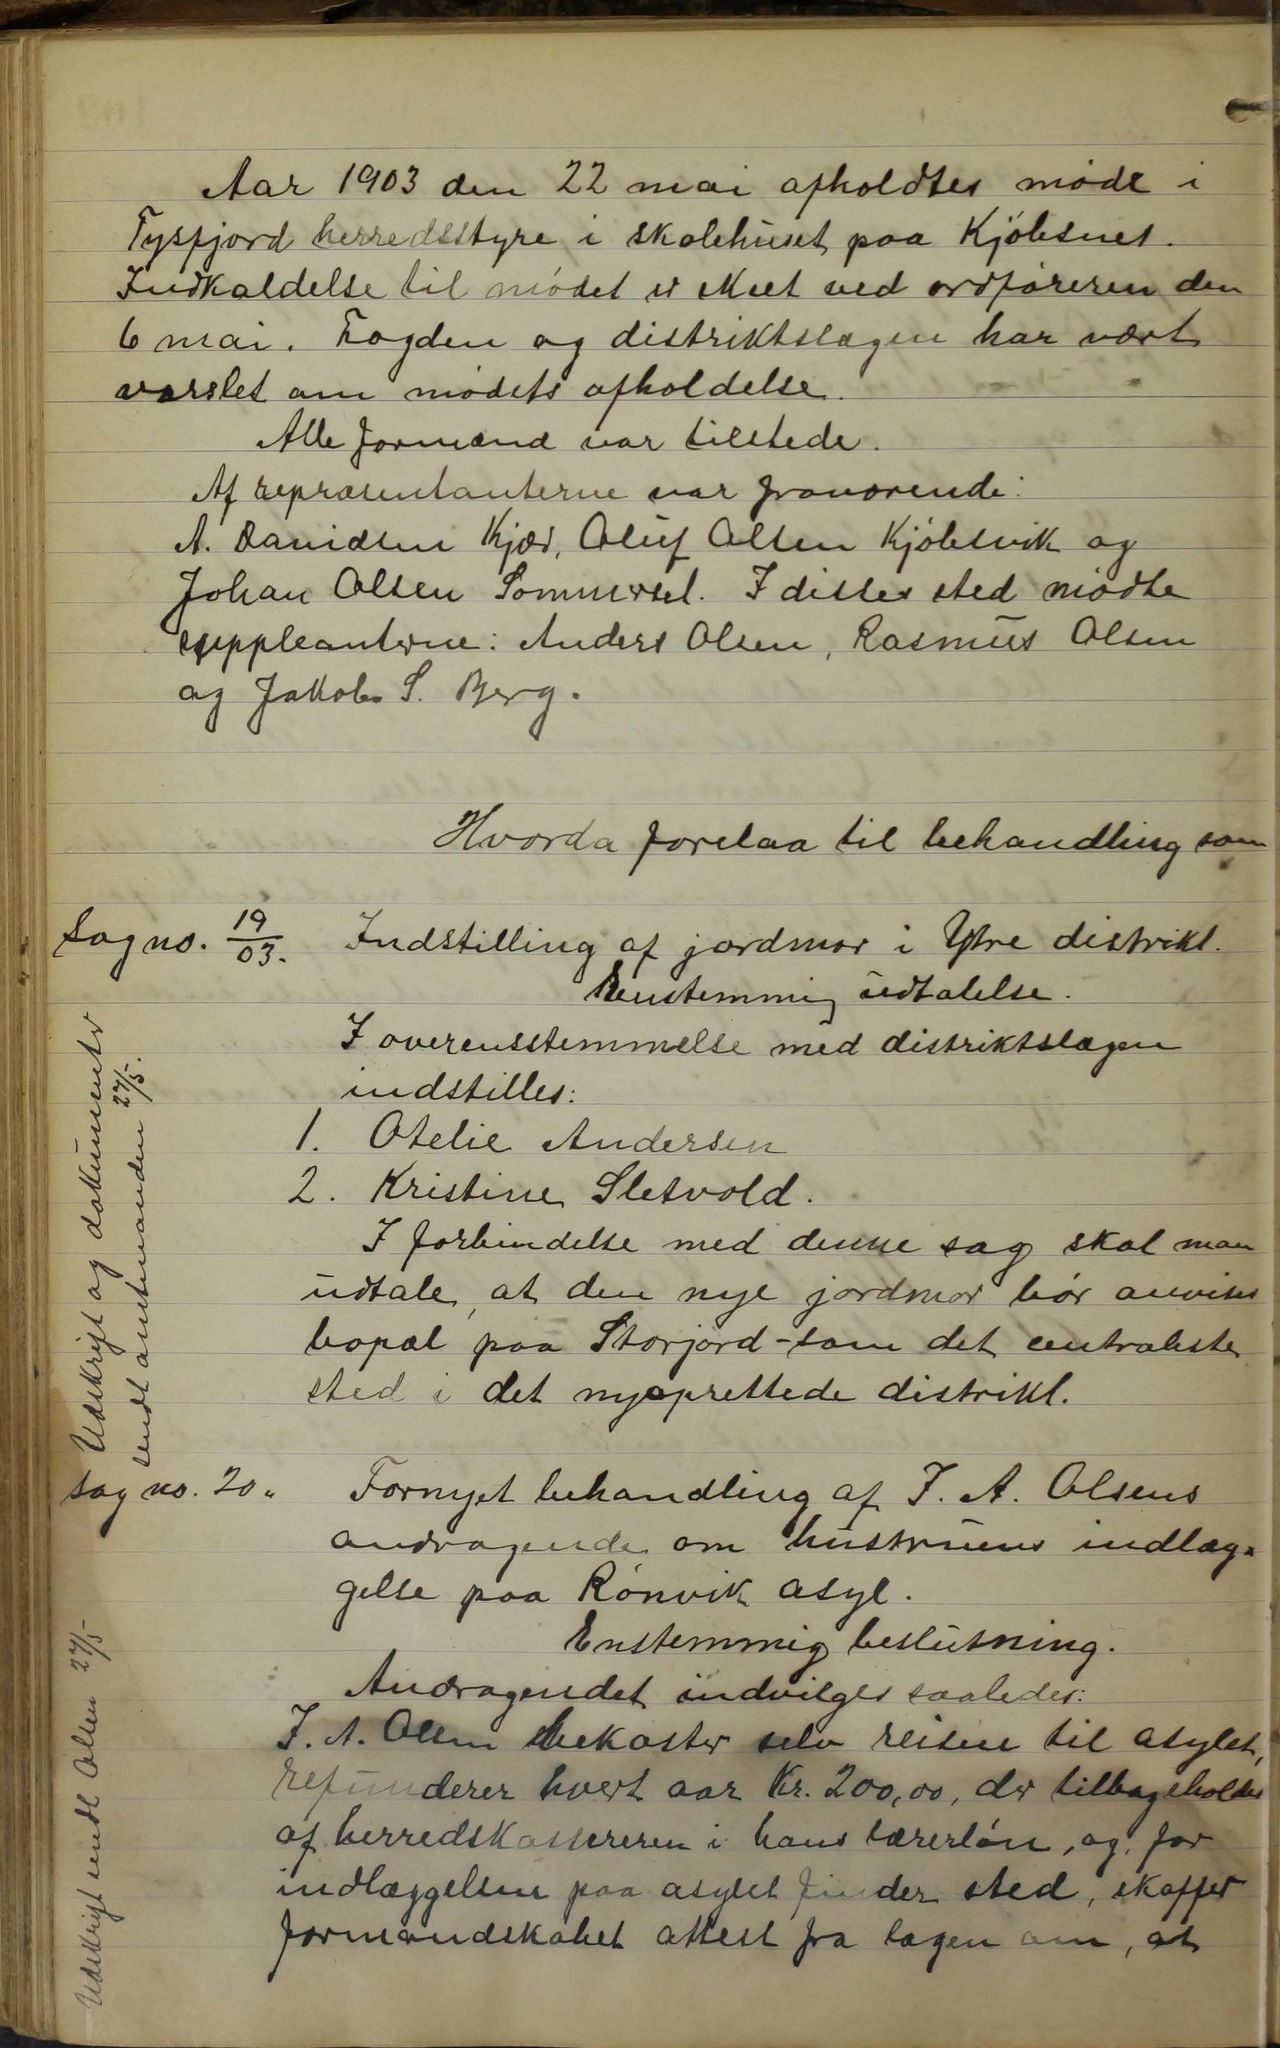 Aar 1903 den 22 mai afholdtes møde i
Tysfjord herredsstyre i skolehuset paa Kjöbsnes.
Indkaldelse til mødet er skeet ved ordføreren den
6 mai. Fogden og distriktslægen har vært
varslet om mødets afholdelse.
Alle formænd var tilstede.
Af repræsentanterne var fraværende:
A. Davidsen Kjær, Oluf Olsen Kjöbsvik og
Johan Olsen Sommersel. I disses sted mødte
suppleanterne: Anders Olsen, Rasmus Olsen
og Jakob S. Berg.
Hvorda forelaa til behandling som
Sag no. 19/03.
Indstilling af jordmor i Ytre distrikt.
Enstemmig udtalelse.
I overensstemmelse med distriktslægen
indstilles:
1. Otelie Andersen
2. Kristine Sletvold.
I forbindelse med denne sag skal man
udtale, at den nye jordmor bør anvises
bopæl paa Storjord - som det centraleste
sted i det nyoprettede distrikt.
Udskrift og dokumenter
sendt amtmanden 27/5.
Sag no. 20.
Fornyet behandling af J. A. Olsens
andragende om hustruens indlæg-
gelse paa Rønvik asyl.
Enstemmig beslutning.
Andragendet indvilges saaledes:
J. A. Olsen bekoster selv reisen til asylet,
refunderer hvert aar Kr. 200,00, der tilbageholdes
af herredskassereren i hans lærerløn, og, før
indlæggelsen paa asylet finder sted, skaffer
formandskabet attest fra lægen om, at
Udskrift sendt Olsen 27/5